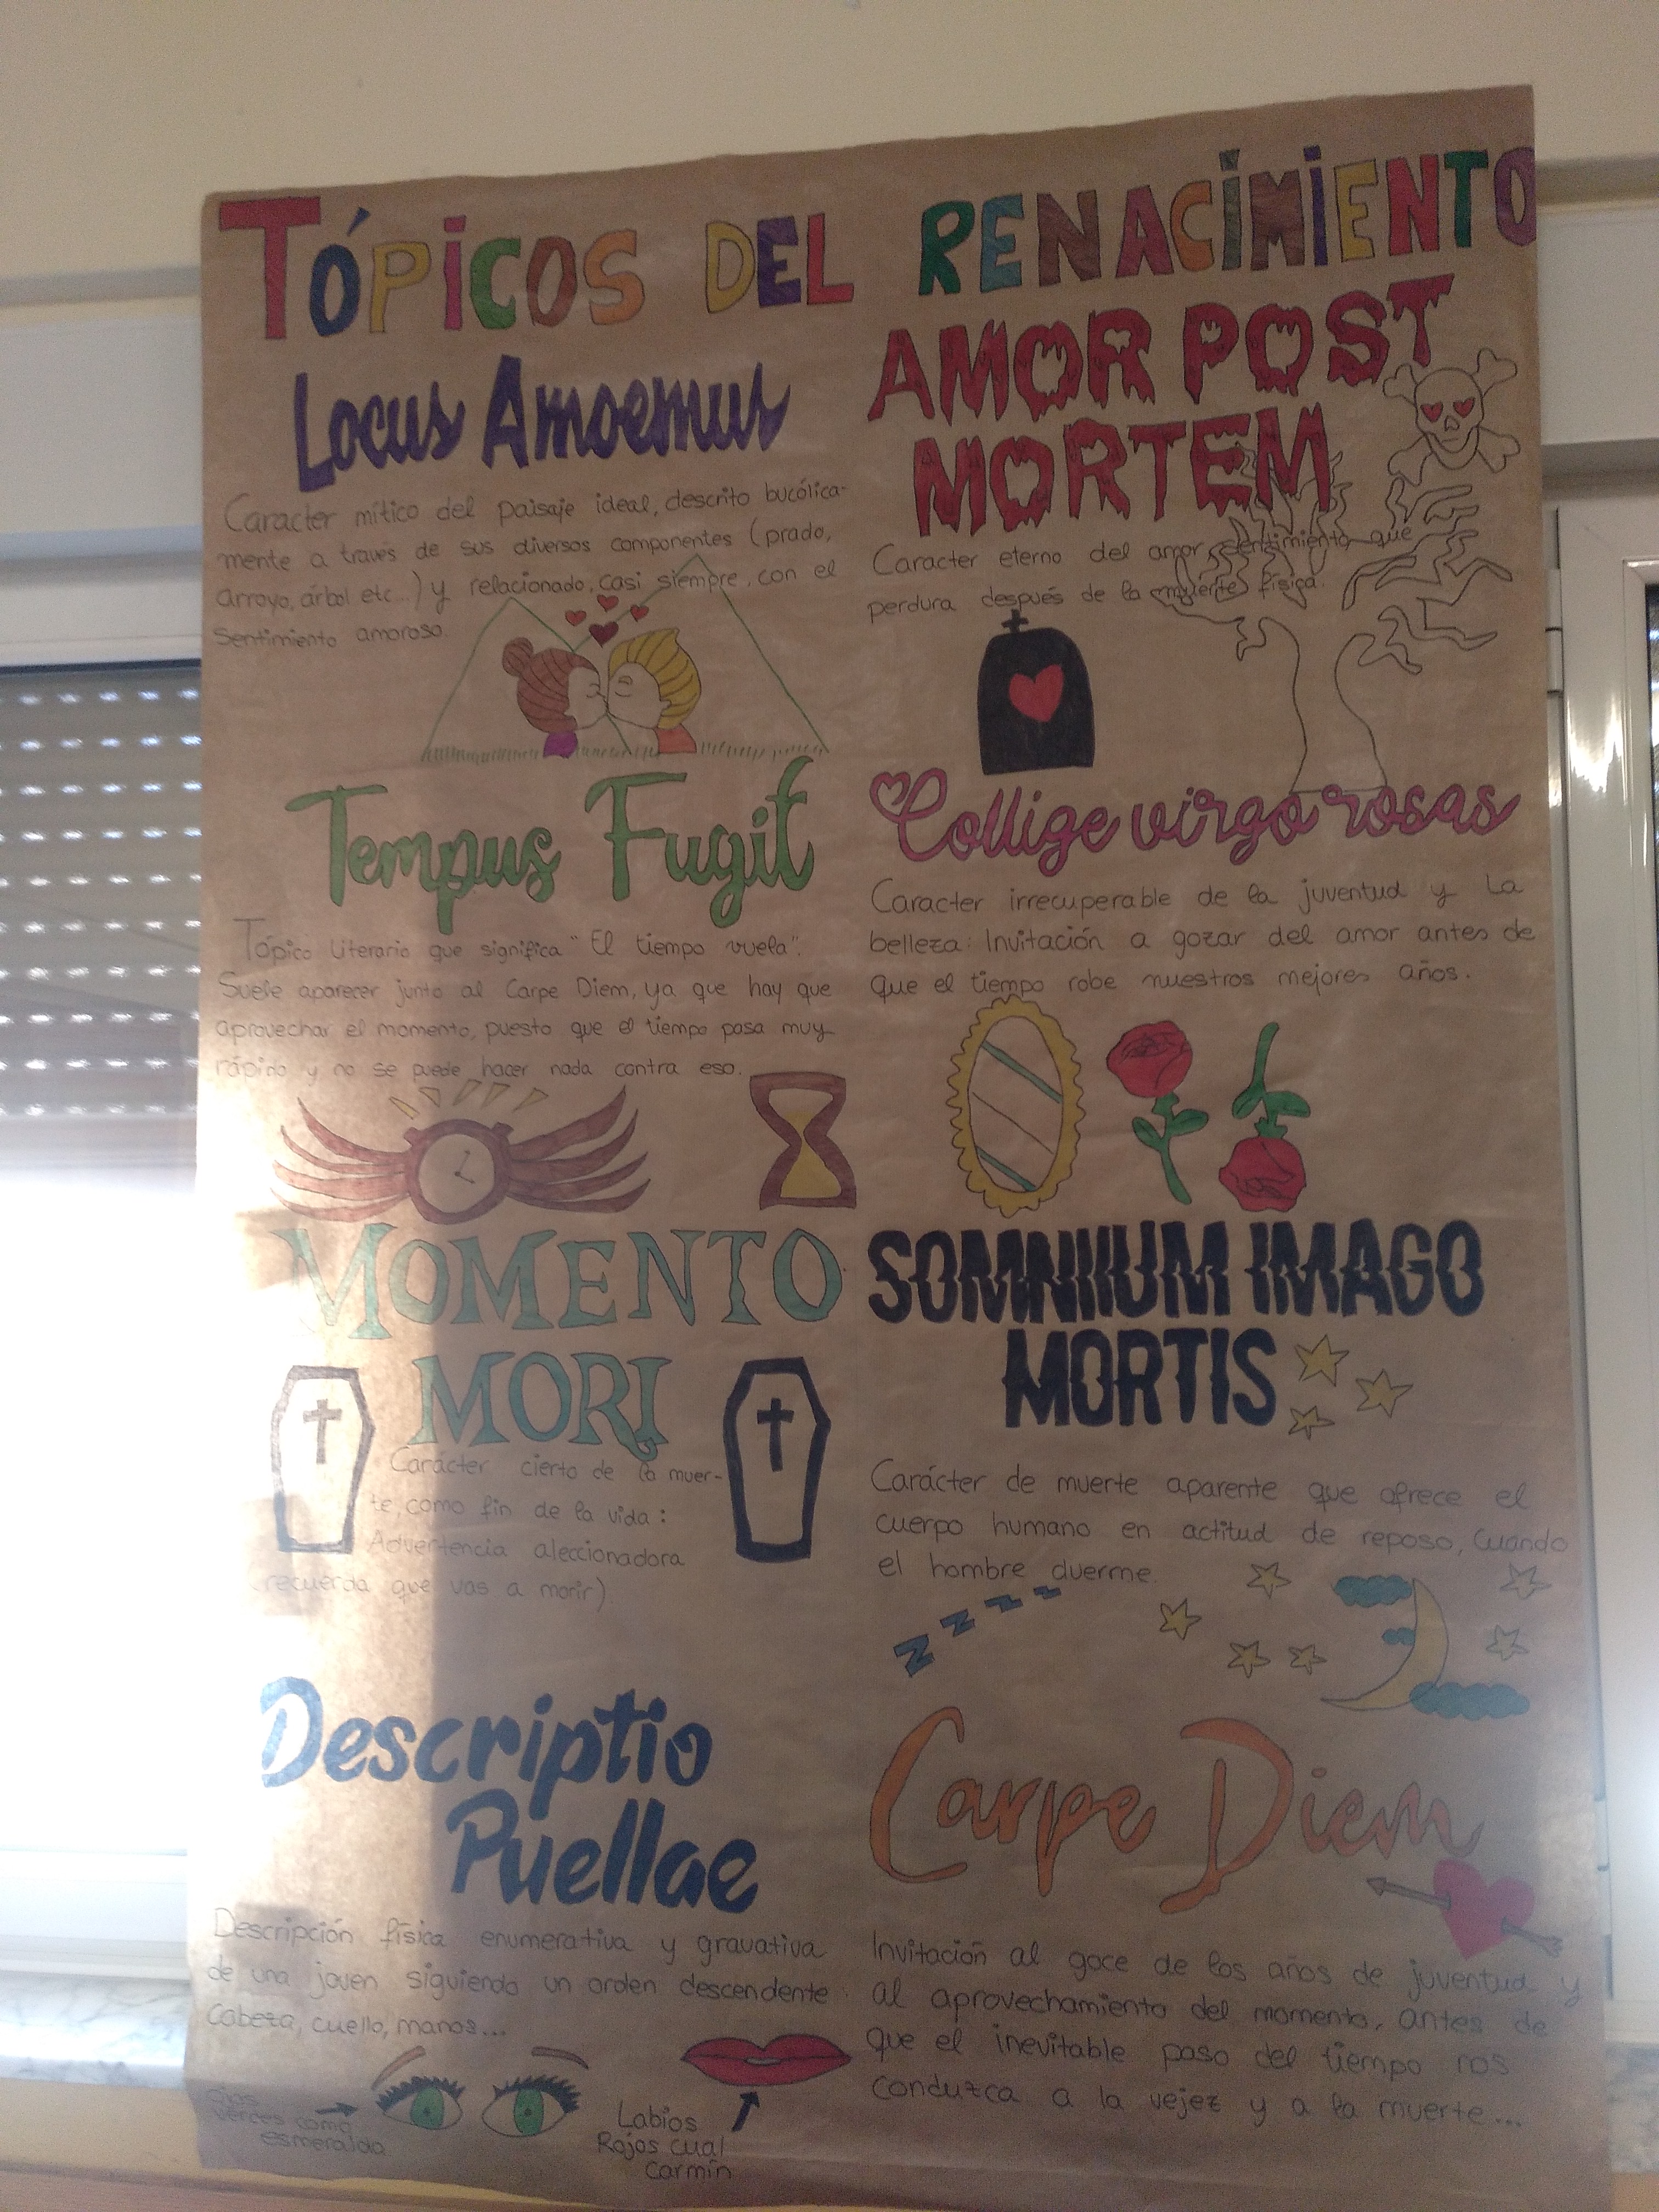 TÓPICOS DEL RENACIMIENTO
Locus Amoemus
Caracter mítico del paisaje ideal, descrito bucólica-
mente a través de sus diversos componentes (prado,
arroyo, árbol etc...) y relacionado, casi siempre, con el
Sentimiento amoroso.
AMOR POST
MORTEM
Caracter eterno del amor, sentimiento que
perdura después de la muerte física.
Tempus Fugit
Tópico Literario que significa "El tiempo vuela".
Suele aparecer junto al Carpe Diem, ya que hay que
aprovechar el momento, puesto que el tiempo pasa muy
rápido y no se puede hacer nada contra eso.
Collige virgo rosas
Caracter irrecuperable de la juventud y La
belleza: Invitación a gozar del amor antes de
que el tiempo robe nuestros mejores años.
MOMENTO
MORI
Carácter cierto de la muer-
te, como fin de la vida:
Advertencia aleccionadora
(recuerda que vas a morir)
SOMNIIUM IMAGO
MORTIS
Carácter de muerte aparente que ofrece el
cuerpo humano en actitud de reposo, cuando
el hombre duerme.
Z Z Z Z Z
Descriptio
Puellae
Descripción física enumerativa y gravativa
de una joven siguiendo un orden descendente:
Cabeza, cuello, manos...
Ojos
verdes como
esmeralda
Labios
Rojos cual
Carmín
Carpe Diem
Invitación al goce de los años de juventud y
al aprovechamiento del momento, antes de
que el inevitable paso del tiempo nos
conduzca a la vejez y a la muerte...